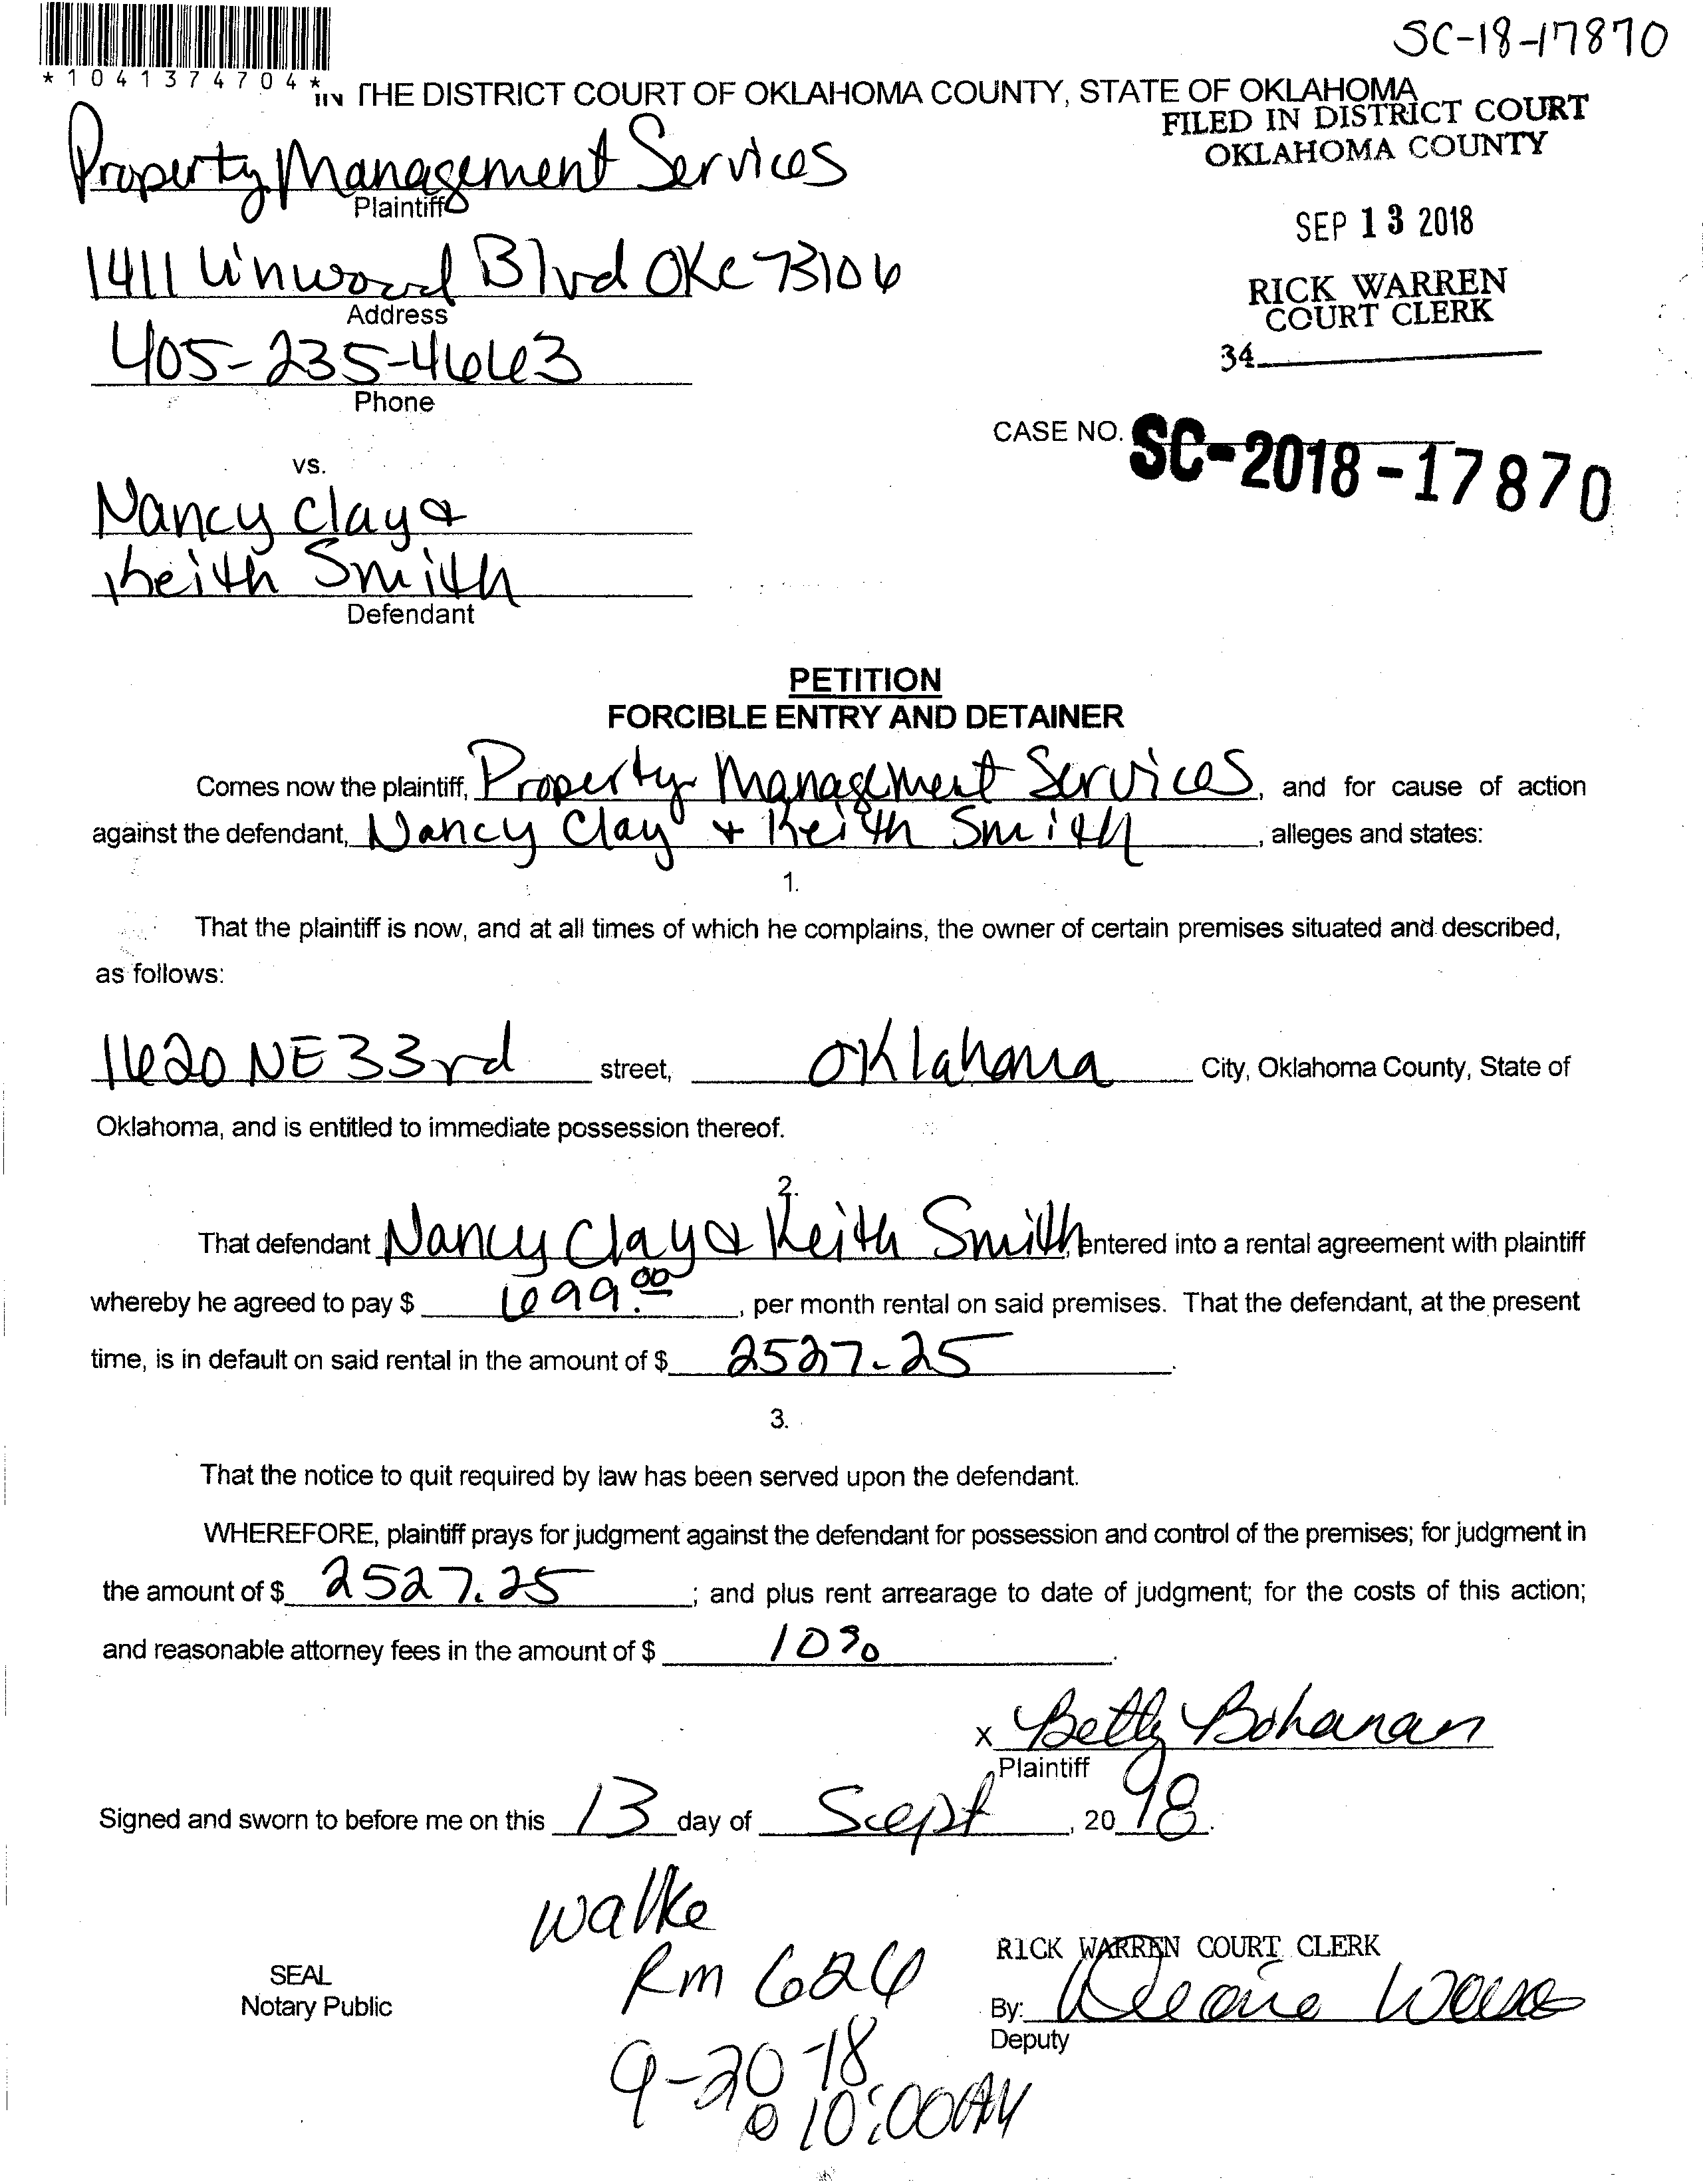 SC-18-17870
*1041374704*
IN THE DISTRICT COURT OF OKLAHOMA COUNTY, STATE OF OKLAHOMA
FILED IN DISTRICT COURT
OKLAHOMA COUNTY
Property Management Services
Plaintiff
SEP 13 2018
1411 Linwood Blvd OKC 73106
Address
RICK WARREN
COURT CLERK
405-235-4663
Phone
34
CASE NO. SC-2018-17870
vs.
Nancy Clay &
Keith Smith
Defendant
PETITION
FORCIBLE ENTRY AND DETAINER
Comes now the plaintiff, Property Management Services, and for cause of action
against the defendant, Nancy Clay + Keith Smith, alleges and states:
1.
That the plaintiff is now, and at all times of which he complains, the owner of certain premises situated and described,
as follows:
1620 NE 33rd street, Oklahoma City, Oklahoma County, State of
Oklahoma, and is entitled to immediate possession thereof.
2.
That defendant Nancy Clay & Keith Smith, entered into a rental agreement with plaintiff
whereby he agreed to pay $ 699.00, per month rental on said premises. That the defendant, at the present
time, is in default on said rental in the amount of $ 2527.25.
3.
That the notice to quit required by law has been served upon the defendant.
WHEREFORE, plaintiff prays for judgment against the defendant for possession and control of the premises; for judgment in
the amount of $ 2527.25; and plus rent arrearage to date of judgment; for the costs of this action;
and reasonable attorney fees in the amount of $ 10%.
x Betty Bohanan
Plaintiff
Signed and sworn to before me on this 13 day of Sept, 20 18.
Walke
Rm 624
9-20-18
@ 10:00AM
SEAL
Notary Public
RICK WARREN COURT CLERK
By:
Deputy